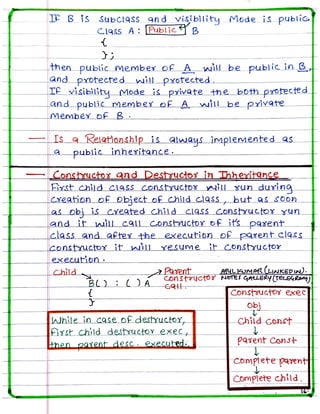 IF B is subclass and visibility Mode is public.
class A : Public B
{
};
then public member of A will be public in B,
and protected will protected.
IF visibility Mode is private the both protected
and public member of A will be private
Member of B.
Is a Relationship is always implemented as
a public inheritance.
Constructor and Destructor in Inheritance
First child class constructor will run during
creation of object of child class, but as soon
as obj is created child class constructor run
and it will call constructor of it's parent
class and after the execution of parent class
constructor it will resume it constructor
execution.
child
B() : ( ) A
{
}
Parent
constructor
call.
ATUL KUMAR (LINKEDIN).
NOTES GALLERY (TELEGRAM)
While in case of destructor,
First child destructor exec,
then parent desc. executed.
Constructor exec
obj
↓
Child const
↓
Parent Const
↓
Complete parent
↓
Complete child.